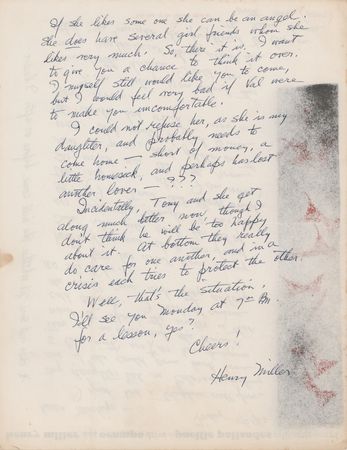 If she likes some one she can be an angel.
She does have several girl friends whom she
likes very much. So, there it is. I want
to give you a chance to think it over.
I myself still would like you to come,
but I would feel very bad if Val were
to make you uncomfortable.
I could not refuse her, as she is my
daughter, and probably needs to
come home — short of money, a
little homesick, and perhaps has lost
another lover — ???
Incidentally, Tony and she get
along much better now, though I
don't think he will be too happy
about it. At bottom they really
do care for one another, and in a
crisis each tries to protect the other.
Well, that's the situation.
I'll see you Monday at 7:00 Pm.
for a lesson, yes?
Cheers!
Henry Miller
henry miller 444 ocampo drive pacific palisades